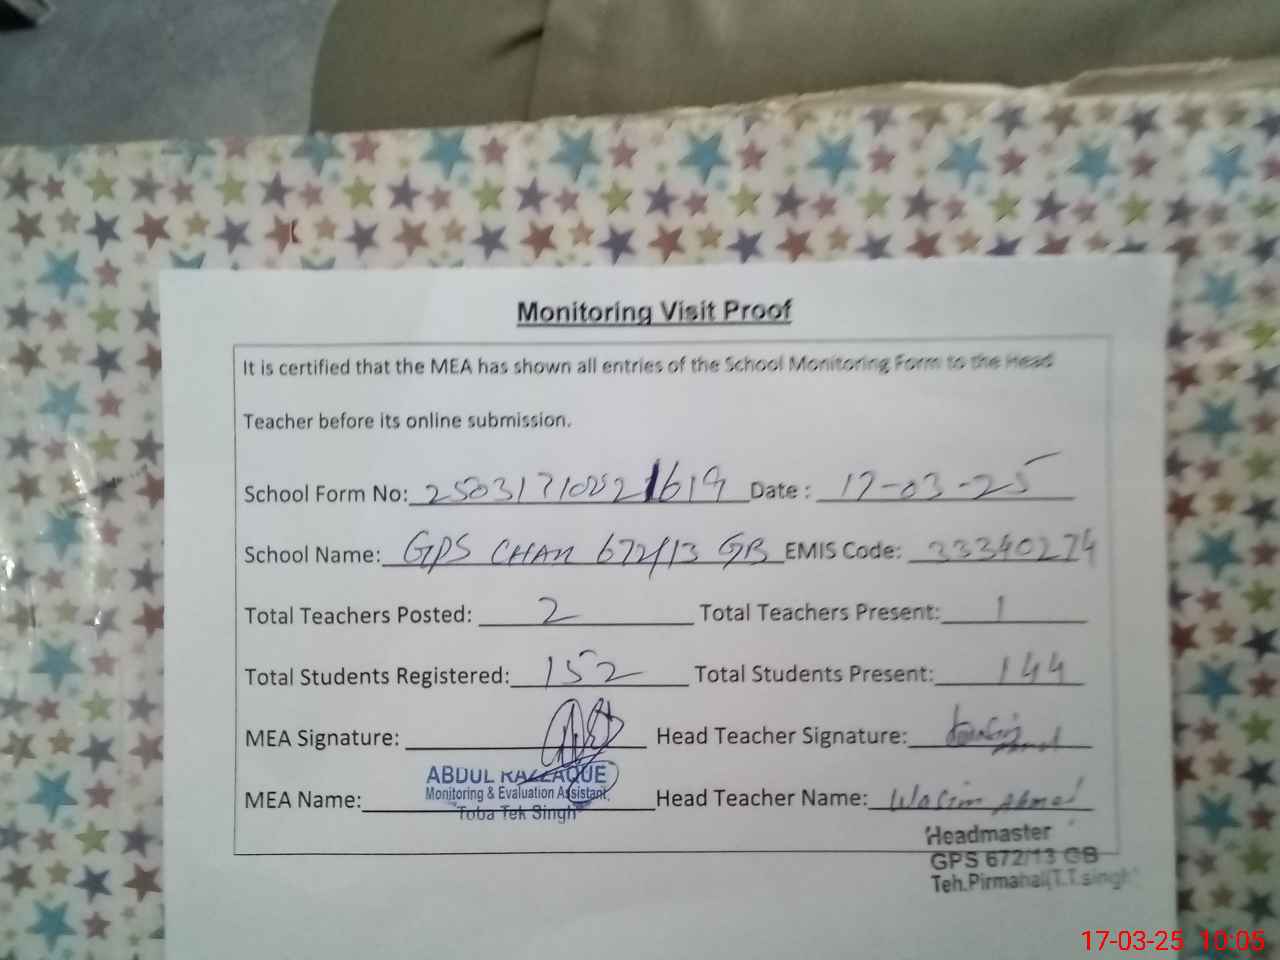 Monitoring Visit Proof
It is certified that the MEA has shown all entries of the School Monitoring Form to the Head
Teacher before its online submission.
School Form No: 2503171002 1619 Date : 17-03-25
School Name: GPS CHAK 672/13 GB EMIS Code: 33340274
Total Teachers Posted: 2 Total Teachers Present: 1
Total Students Registered: 152 Total Students Present: 144
MEA Signature: Head Teacher Signature:
ABDUL RAZZAQUE
Monitoring & Evaluation Assistant,
MEA Name: Head Teacher Name: Wasim Ahmed
Toba Tek Singh
Headmaster
GPS 672/13 GB
Teh.Pirmahal(T.T.singh)
17-03-25 10:05